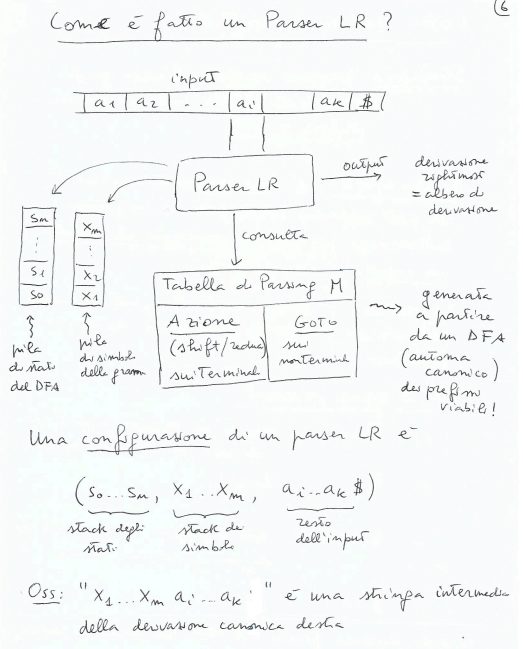 6
Come è fatto un Parser LR ?
input
a1 a2 ... ai ak $
Parser LR
output
derivazione
rightmost
= albero di
derivazione
Sm
⋮
S1
S0
Xm
⋮
X2
X1
consulta
Tabella di Parsing M
Azione
(shift/reduce)
sui Terminali
GOTO
sui
nonterminali
generata
a partire
da un DFA
(automa
canonico)
dei prefissi
viabili!
pila
di stati
del DFA
pila
di simboli
della gramm
Una configurazione di un parser LR è
(S0...Sm, X1..Xm, ai..ak $)
stack degli
stati
stack dei
simboli
resto
dell'input
Oss: "X1...Xm ai...ak" è una stringa intermedia
della derivazione canonica destra